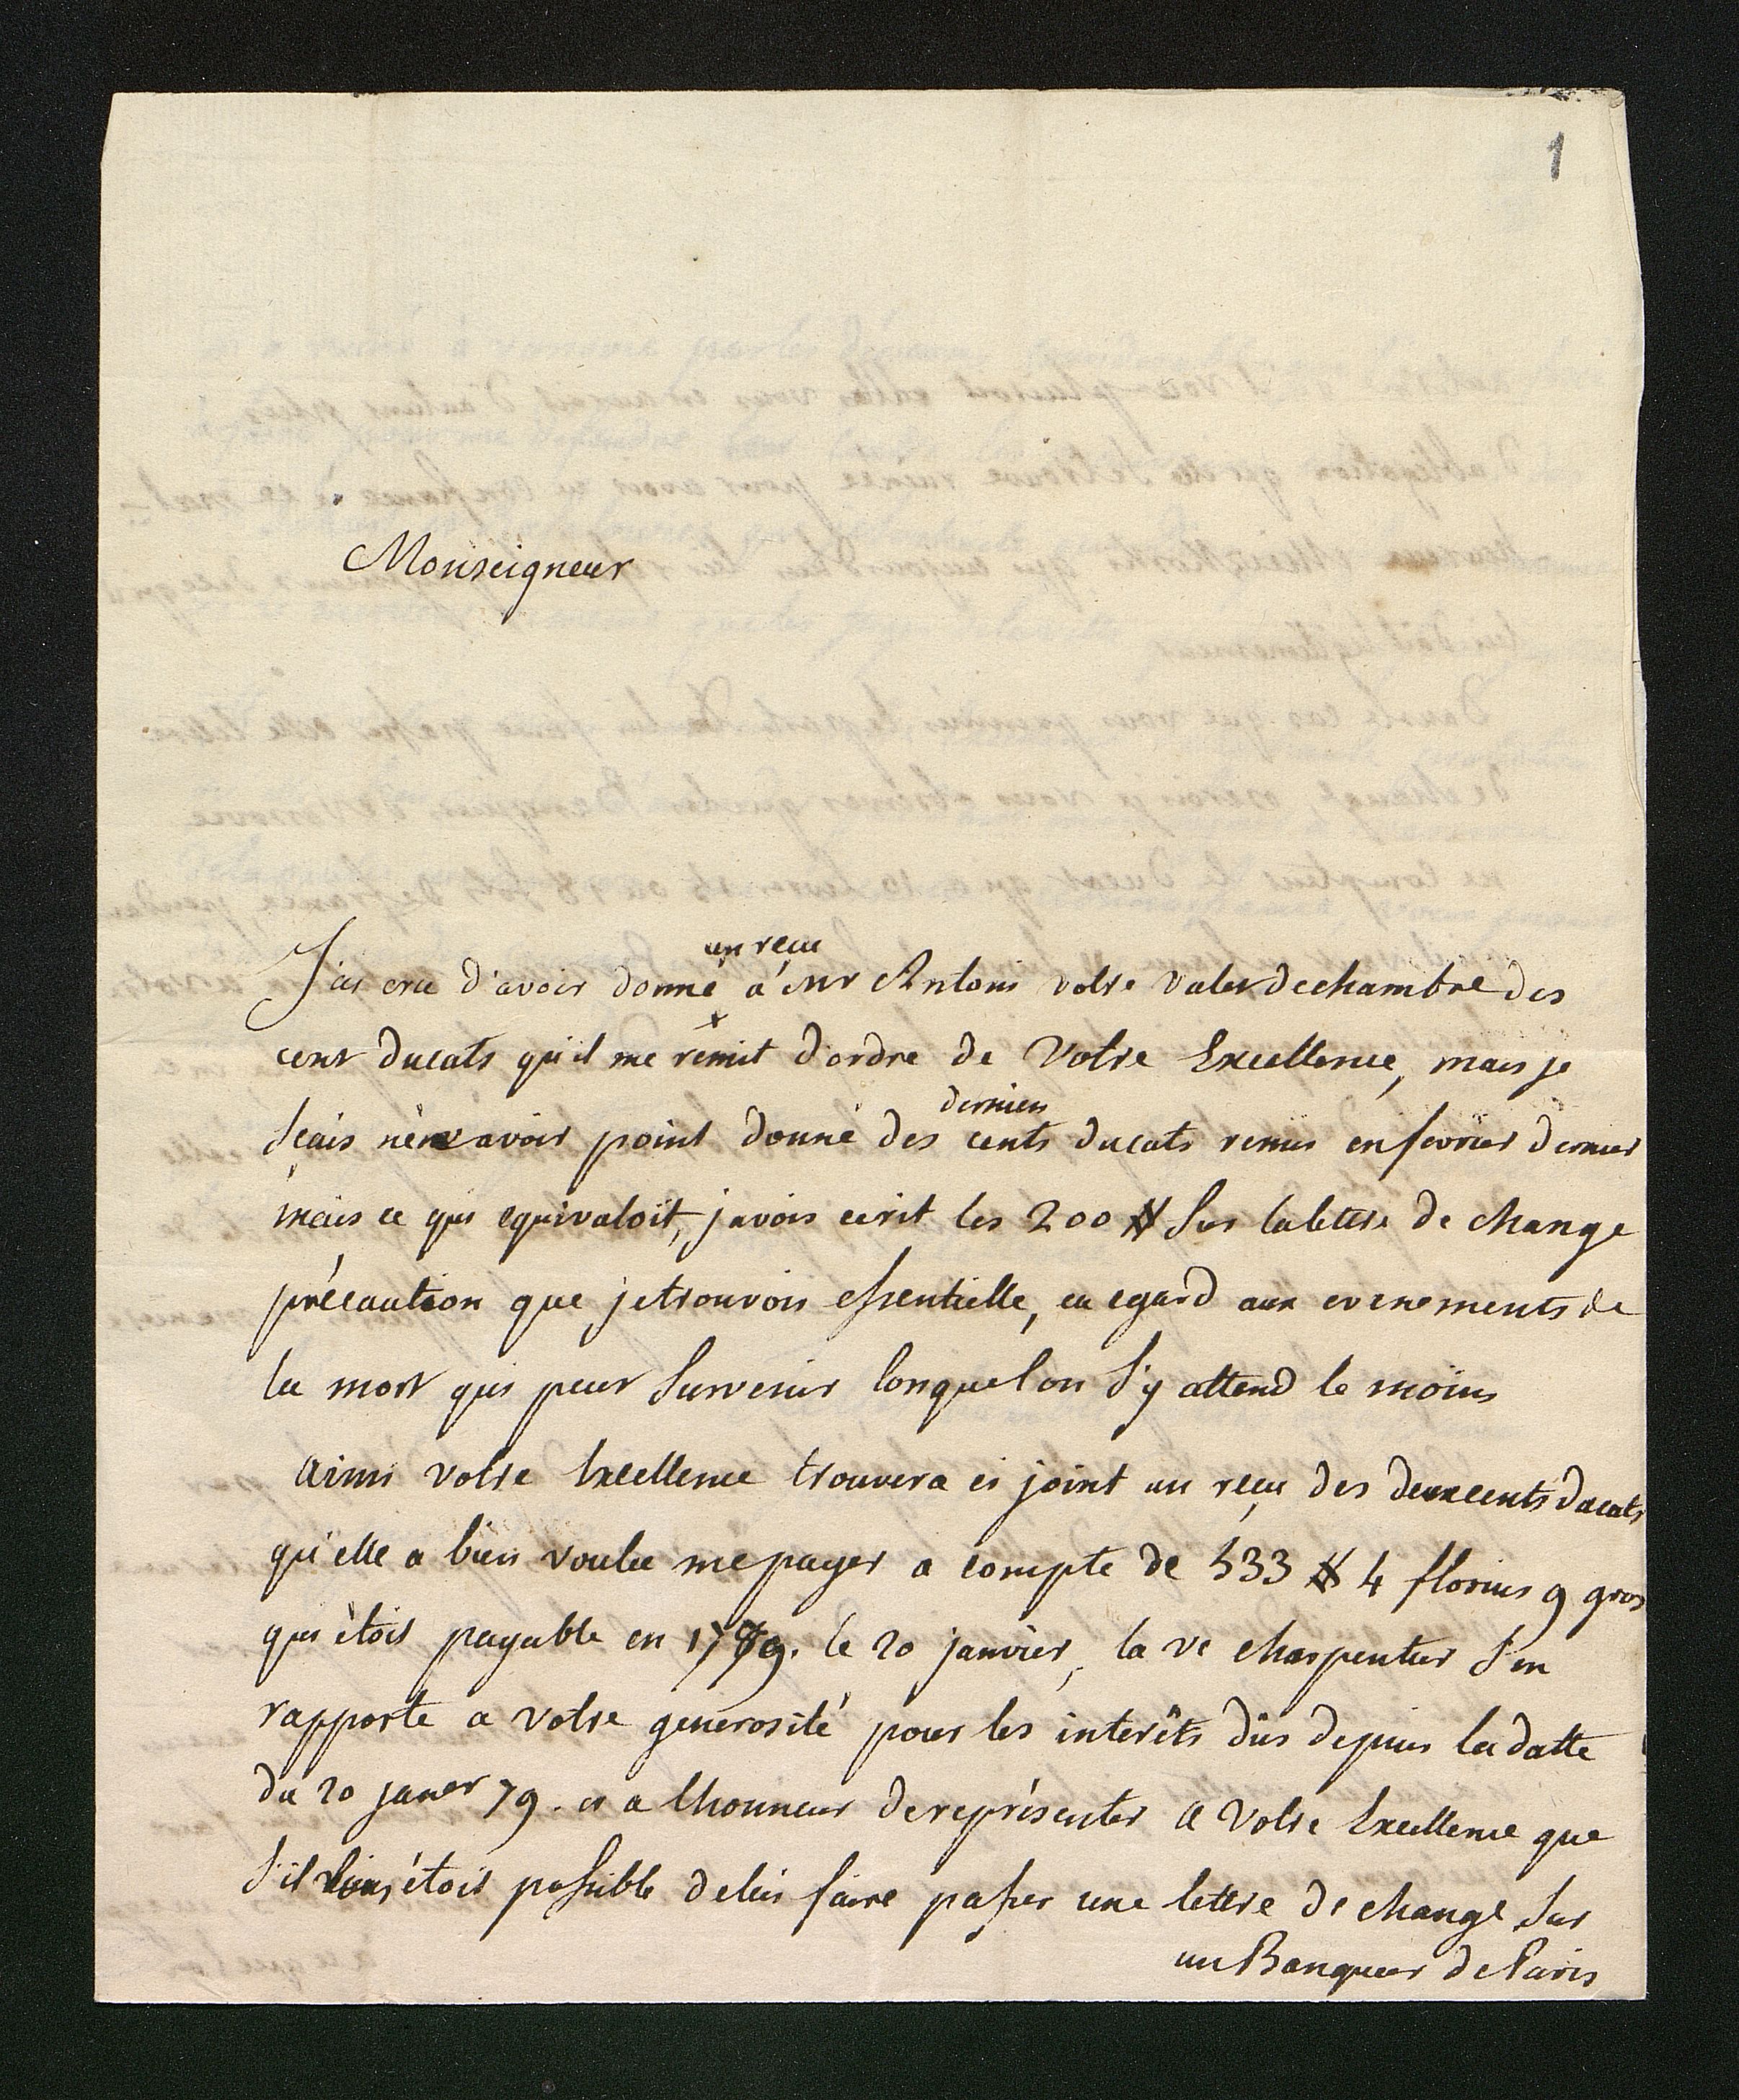 1
Monseigneur
un recu
J'ai cru d'avoir donné à Mr Antoni votre valet de chambre des
cent ducats qu'il me remit d'ordre de Votre Excellence, mais je
sçais n'en avoir point donné des cents ducats remis en fevrier dernier
derniers
mais ce qui equivaloit, j'avois ecrit les 200 # sur la lettre de change
précaution que je trouvois essentielle, eu egard aux evenements de
la mort qui peut survenir lorsque l'on s'y attend le moins
ainsi votre Excellence trouvera ci joint un reçu des deux cents ducats
qu'elle a bien voulu me payer a compte de 533 # 4 florins 9 gros
qui étoit payable en 1779. le 20 janvier, la ve Charpentier s'en
rapporte a votre generosité pour les interêts dûs depuis la datte
du 20 janer 79. et a l'honneur de représenter a Votre Excellence que
s'il étoit possible de lui faire passer une lettre de change sur
un Banquier de Paris